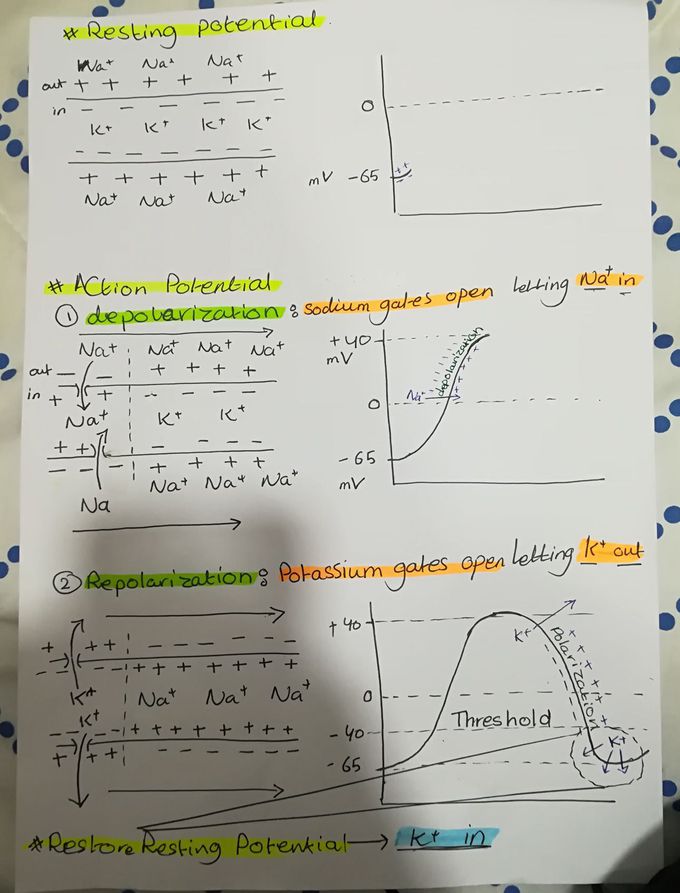 * Resting potential.
Na+ Na+ Na+
out + + + + + +
in - - - - - - -
K+ K+ K+ K+
- - - - - - -
+ + + + + +
Na+ Na+ Na+
0
mV -65
++
* Action Potential
① depolarization : sodium gates open letting Na+ in
Na+ Na+ Na+ Na+
out - - + + + +
in + + - - - -
Na+ K+ K+
+ + - - - -
- - - + + + +
Na+ Na+ Na+
Na
+40
mV
depolarization
Na+
0
-65
mV
② Repolarization : Potassium gates open letting K+ out
+ + + - - - - -
- - - + + + + + + +
K+ Na+ Na+ Na+
K+
- - - - + + + + + + +
+ + + - - - - - -
+40
K+
Polarization
0
Threshold
-40
K+
-65
* Restore Resting Potential → K+ in